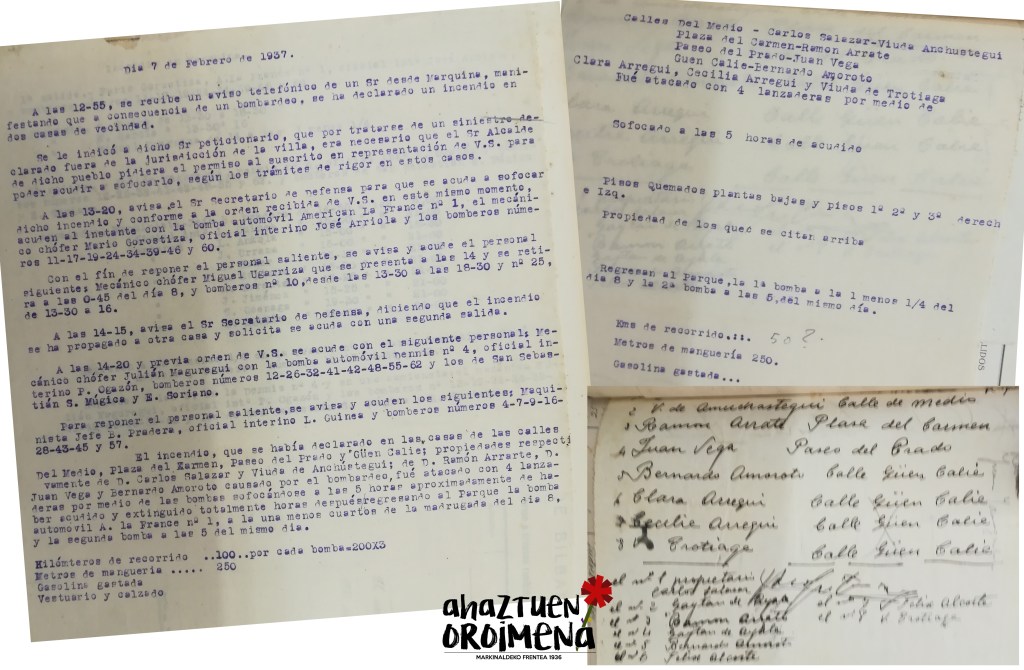 Dia 7 de Febrero de 1937.
A las 12-55, se recibe un aviso telefónico de un Sr desde Marquina, mani-
festando que a consecuencia de un bombardeo, se ha declarado un incendio en
dos casas de vecindad.
Se le indicó a dicho Sr peticionario, que por tratarse de un siniestro de-
clarado fuera de la jurisdicción de la villa, era necesario que el Sr Alcalde
de dicho pueblo pidiera el permiso al suscrito en representación de V.S. para
poder acudir a sofocarlo, según los trámites de rigor en estos casos.
A las 13-20, avisa el Sr Secretario de Defensa para que se acuda a sofocar
dicho incendio y conforme a la orden recibida de V.S. en este mismo momento,
acuden al instante con la bomba automóvil American La France nº 1, el mecáni-
co chófer Mario Gorostiza, oficial interino José Arriola y los bomberos núme-
ros 11-17-19-24-34-39-46 y 60.
Con el fín de reponer el personal saliente, se avisa y acude el personal
siguiente; Mecánico chófer Miguel Ugarriza que se presenta a las 14 y se reti-
ra a las 0-45 del día 8, y bomberos nº 10,desde las 13-30 a las 18-30 y nº 25,
de 13-30 a 16.
A las 14-15, avisa el Sr Secretario de Defensa, diciendo que el incendio
se ha propagado a otra casa y solicita se acuda con una segunda salida.
A las 14-20 y previa orden de V.S. se acude con el siguiente personal; Me-
cánico chófer Julián Maguregui con la bomba automóvil Dennis nº 4, oficial in-
terino P. Ogazón, bomberos números 12-26-32-41-42-48-55-62 y los de San Sebas-
tián S. Múgica y E. Soriano.
Para reponer el personal saliente,se avisa y acuden los siguientes; Maqui-
nista Jefe E. Pradera, oficial interino L. Guinea y bomberos números 4-7-9-16-
28-43-45 y 57.
El incendio, que se había declarado en las,casas de las calles
Del Medio, Plaza del Karmen, Paseo del Prado y Güen Calie; propiedades respecti
vamente de D. Carlos Salazar y Viuda de Anchústegui; de D. Ramón Arrarte, D.
Juan Vega y Bernardo Amoroto causado por el bombardeo,fué atacado con 4 lanza-
deras por medio de las bombas sofocándose a las 5 horas aproximadamente de ha-
ber acudido y extinguido totalmente horas despuésregresando al Parque la bomba
automóvil A. la France nº 1, a la una menos cuartos de la madrugada del día 8,
y la segunda bomba a las 5 del mismo día.
Kilómteros de recorrido ..100..por cada bomba=200X3
Metros de manguería ..... 250
Gasolina gastada
Vestuario y calzado
Calles Del Medio - Carlos Salazar-Viuda Anchustegui
Plaza del Carmen-Ramon Arrate
Paseo del Prado-Juan Vega
Guen Calie-Bernardo Amoroto
Clara Arregui, Cecilia Arregui y Viuda de Trotiaga
Fué atacado con 4 lanzaderas por medio de
Sofocado a las 5 horas de acudido
Pisos Quemados plantas bajas y pisos 1º 2º y 3º derech
e Izq.
Propiedad de los que se citan arriba
Regresan al Parque,la 1ª bomba a la 1 menos 1/4 del
dia 8 y la 2ª bomba a las 5,del mismo día.
Kms de recorrido.::. 50?
Metros de manguería 250.
Gasolina gastada...
2 V. de Amuchastegui Calle de Medio
3 Ramon Arrate Plasa del Carmen
4 Juan Vega Paseo del Prado
5 Bernardo Amoroto Calle Güen Calie
6 Clara Arregui Calle Güen Calie
7 Cecilie Arregui Calle Güen Calie
8 V. Trotiage Calle Güen Calie
el nº 1 propietari
Carlos Salasar
el nº 2 Gaytan de Ayala
el nº 3 Ramon Arrate
el nº 4 Gaytan de Ayala
el nº 5 Bernardo Amorot
el nº 6 Felix Alcorte
el nº 7 Felix Alcorte
el nº 8 V. Trotiage
ahaztuen
oroimena
MARKINALDEKO FRENTEA 1936